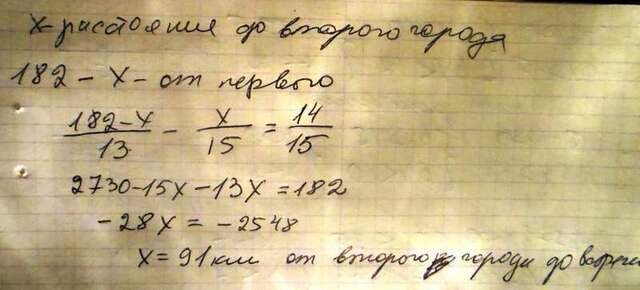 x-расстояние до второго города
182 - x - от первого
(182-x)/13 - x/15 = 14/15
2730-15x-13x=182
-28x = -2548
x=91км от второго города до встречи